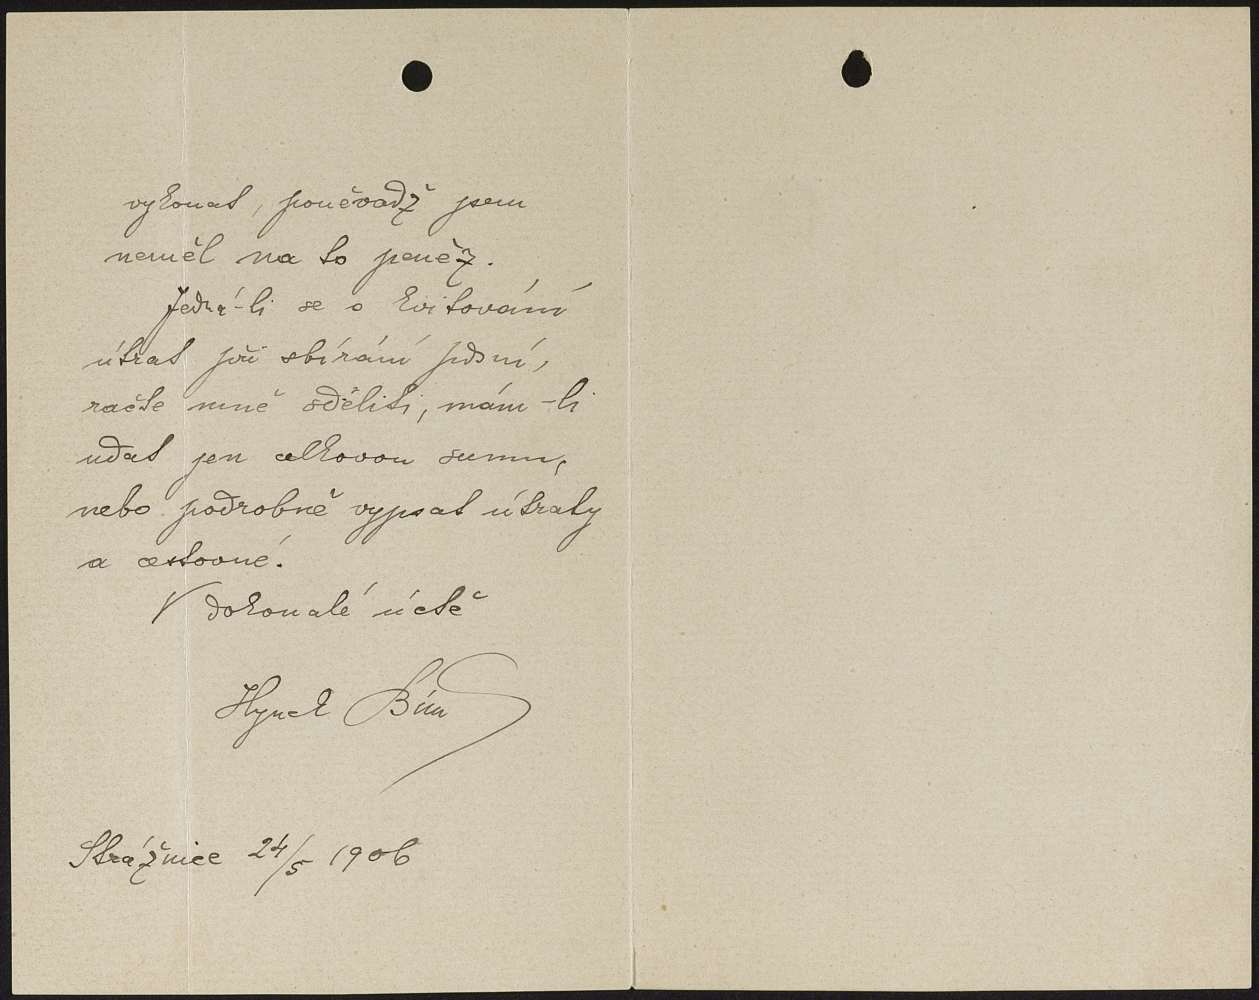 vykonat, poněvadž jsem
neměl na to peněz.
Jedná-li se o kvitování
útrat při sbírání písní,
račte mně sděliti, mám-li
udat jen celkovou sumu,
nebo podrobně vypsat útraty
a cestovné.
V dokonalé úctě
Hynek Bím
Strážnice 24/5 1906